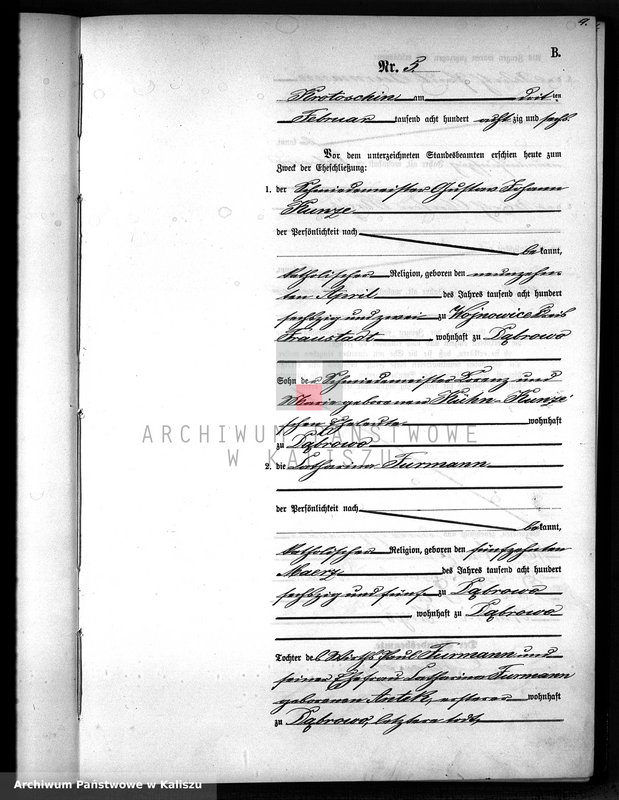 4.
B.
Nr. 5
Krotoschin am ten
Februar tausend acht hundert acht zig und sechs.
Vor dem unterzeichneten Standesbeamten erschien heute zum
Zweck der Eheschließung:
1. der Schmiedemeister Gustav Johann
Kunze
der Persönlichkeit nach
be kannt,
katholischer Religion, geboren den neunzehn-
ten April des Jahres tausend acht hundert
sechszig und zwei zu Wojnowice Kreis
Fraustadt, wohnhaft zu Dąbrowo
Sohn der Schmiedemeister Lorenz und
Marie geborenen Kühn-Kunze'
schen Eheleute wohnhaft
zu Dąbrowo
ARCHIWUM PAŃSTWOWE
W KALISZU
2. die Catharina Furmann
der Persönlichkeit nach
be kannt,
katholischer Religion, geboren den fünfzehnten
Maerz des Jahres tausend acht hundert
sechszig und fünf zu Dąbrowo
, wohnhaft zu Dąbrowo
Tochter des Wirths Paul Furmann und
seiner Ehefrau Catharina Furmann
geborenen Antek, ersterer wohnhaft
zu Dąbrowo, letztere todt,
Archiwum Państwowe w Kaliszu